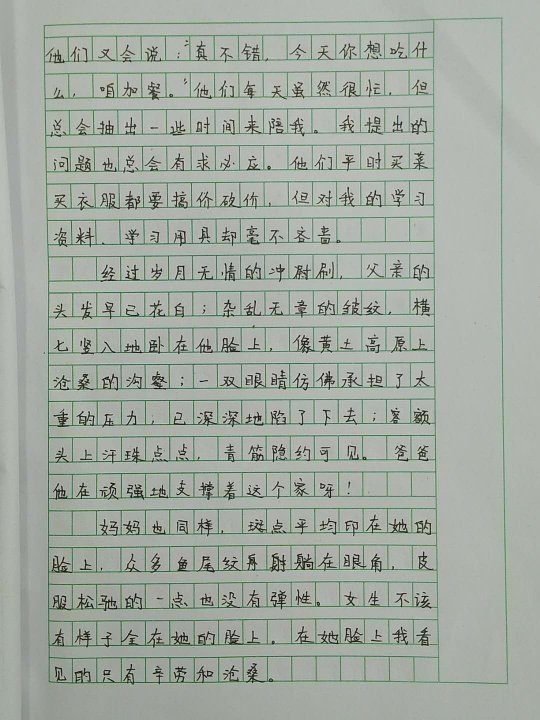 他们又会说：“真不错，今天你想吃什
么，咱加餐。”他们每天虽然很忙，但
总会抽出一些时间来陪我。我提出的
问题也总会有求必应。他们平时买菜
买衣服都要搞价砍价，但对我的学习
资料、学习用具却毫不吝啬。
经过岁月无情的冲刷，父亲的
头发早已花白；杂乱无章的皱纹，横
七竖八地卧在他脸上，像黄土高原上
沧桑的沟壑；一双眼睛仿佛承担了太
重的压力；已深深地陷了下去；客额
头上汗珠点点，青筋隐约可见。爸爸
他在顽强地支撑着这个家呀！
妈妈也同样，斑点平均印在她的
脸上，众多鱼尾纹躺在眼角，皮
服松弛的一点也没有弹性。女生不该
有样子全在她的脸上。在她脸上我看
见的只有辛劳和沧桑。